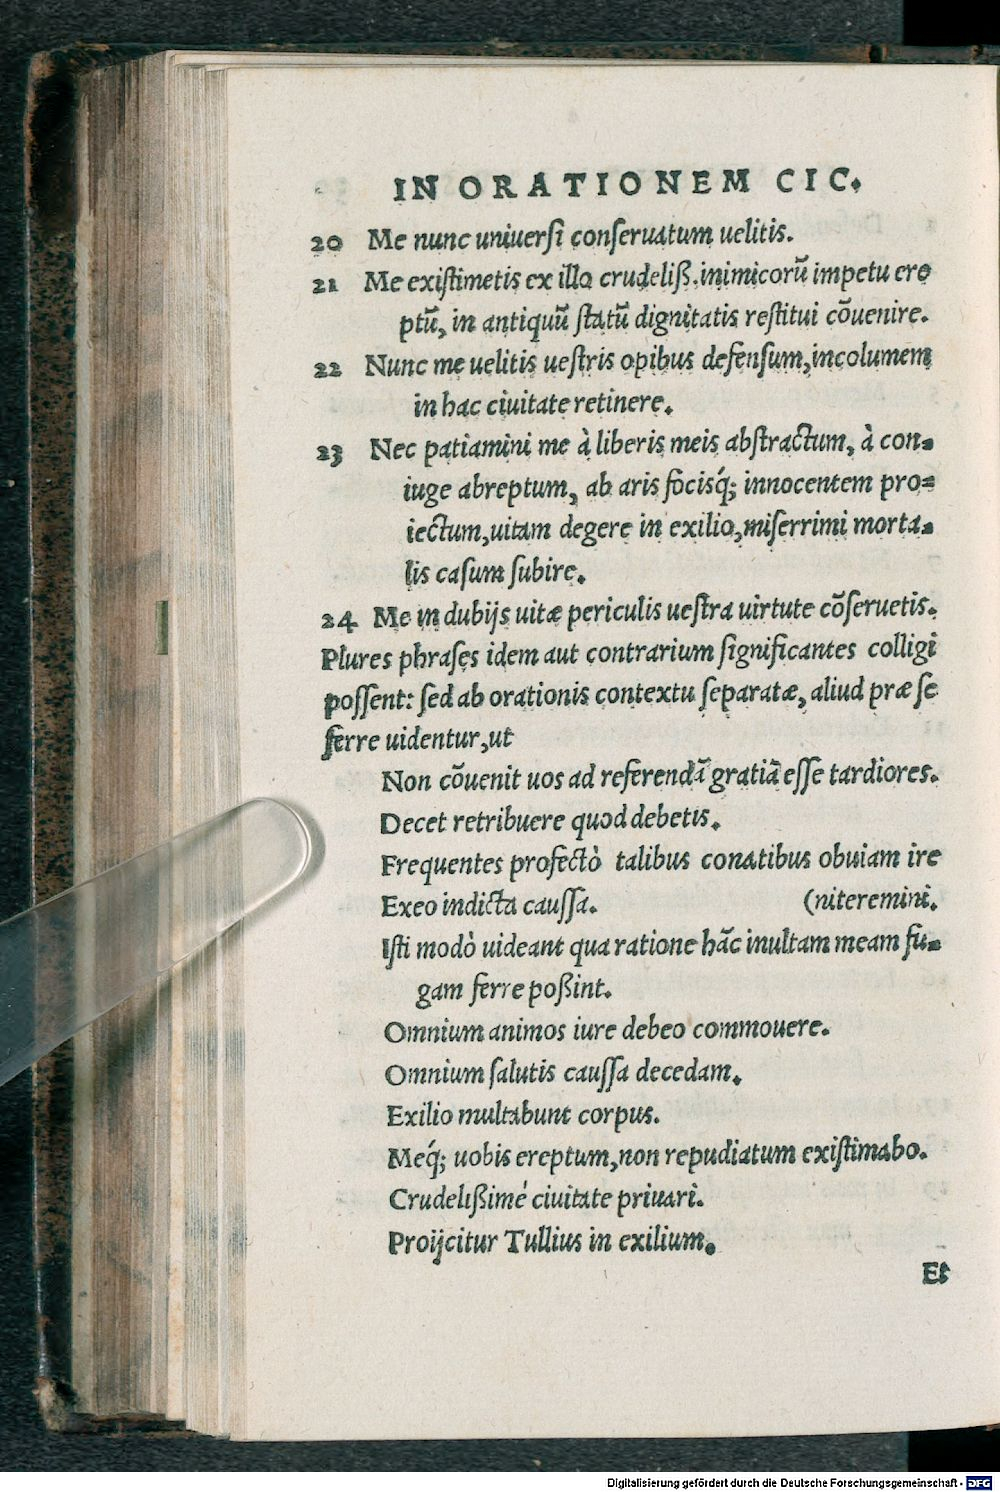 IN ORATIONEM CIC.
20 Me nunc uniuersi conseruatum uelitis.
21 Me existimetis ex illo crudeliß. inimicorũ impetu ere
ptũ, in antiquũ statũ dignitatis restitui cõuenire.
22 Nunc me uelitis uestris opibus defensum, incolumem
in hac ciuitate retinere.
23 Nec patiamini me à liberis meis abstractum, à con=
iuge abreptum, ab aris focisq́; innocentem pro=
iectum, uitam degere in exilio, miserrimi morta=
lis casum subire.
24 Me in dubijs uitæ periculis uestra uirtute cõseruetis.
Plures phrases idem aut contrarium significantes colligi
possent: sed ab orationis contextu separatæ, aliud præ se
ferre uidentur, ut
Non cõuenit uos ad referendã gratiã esse tardiores.
Decet retribuere quod debetis.
Frequentes profectò talibus conatibus obuiam ire
Exeo indicta caussa. (niteremini.
Isti modò uideant qua ratione hãc inultam meam fu=
gam ferre poßint.
Omnium animos iure debeo commouere.
Omnium salutis caussa decedam.
Exilio multabunt corpus.
Meq́; uobis ereptum, non repudiatum existimabo.
Crudelißimè ciuitate priuari.
Proijcitur Tullius in exilium.
Et
Digitalisierung gefördert durch die Deutsche Forschungsgemeinschaft - DFG